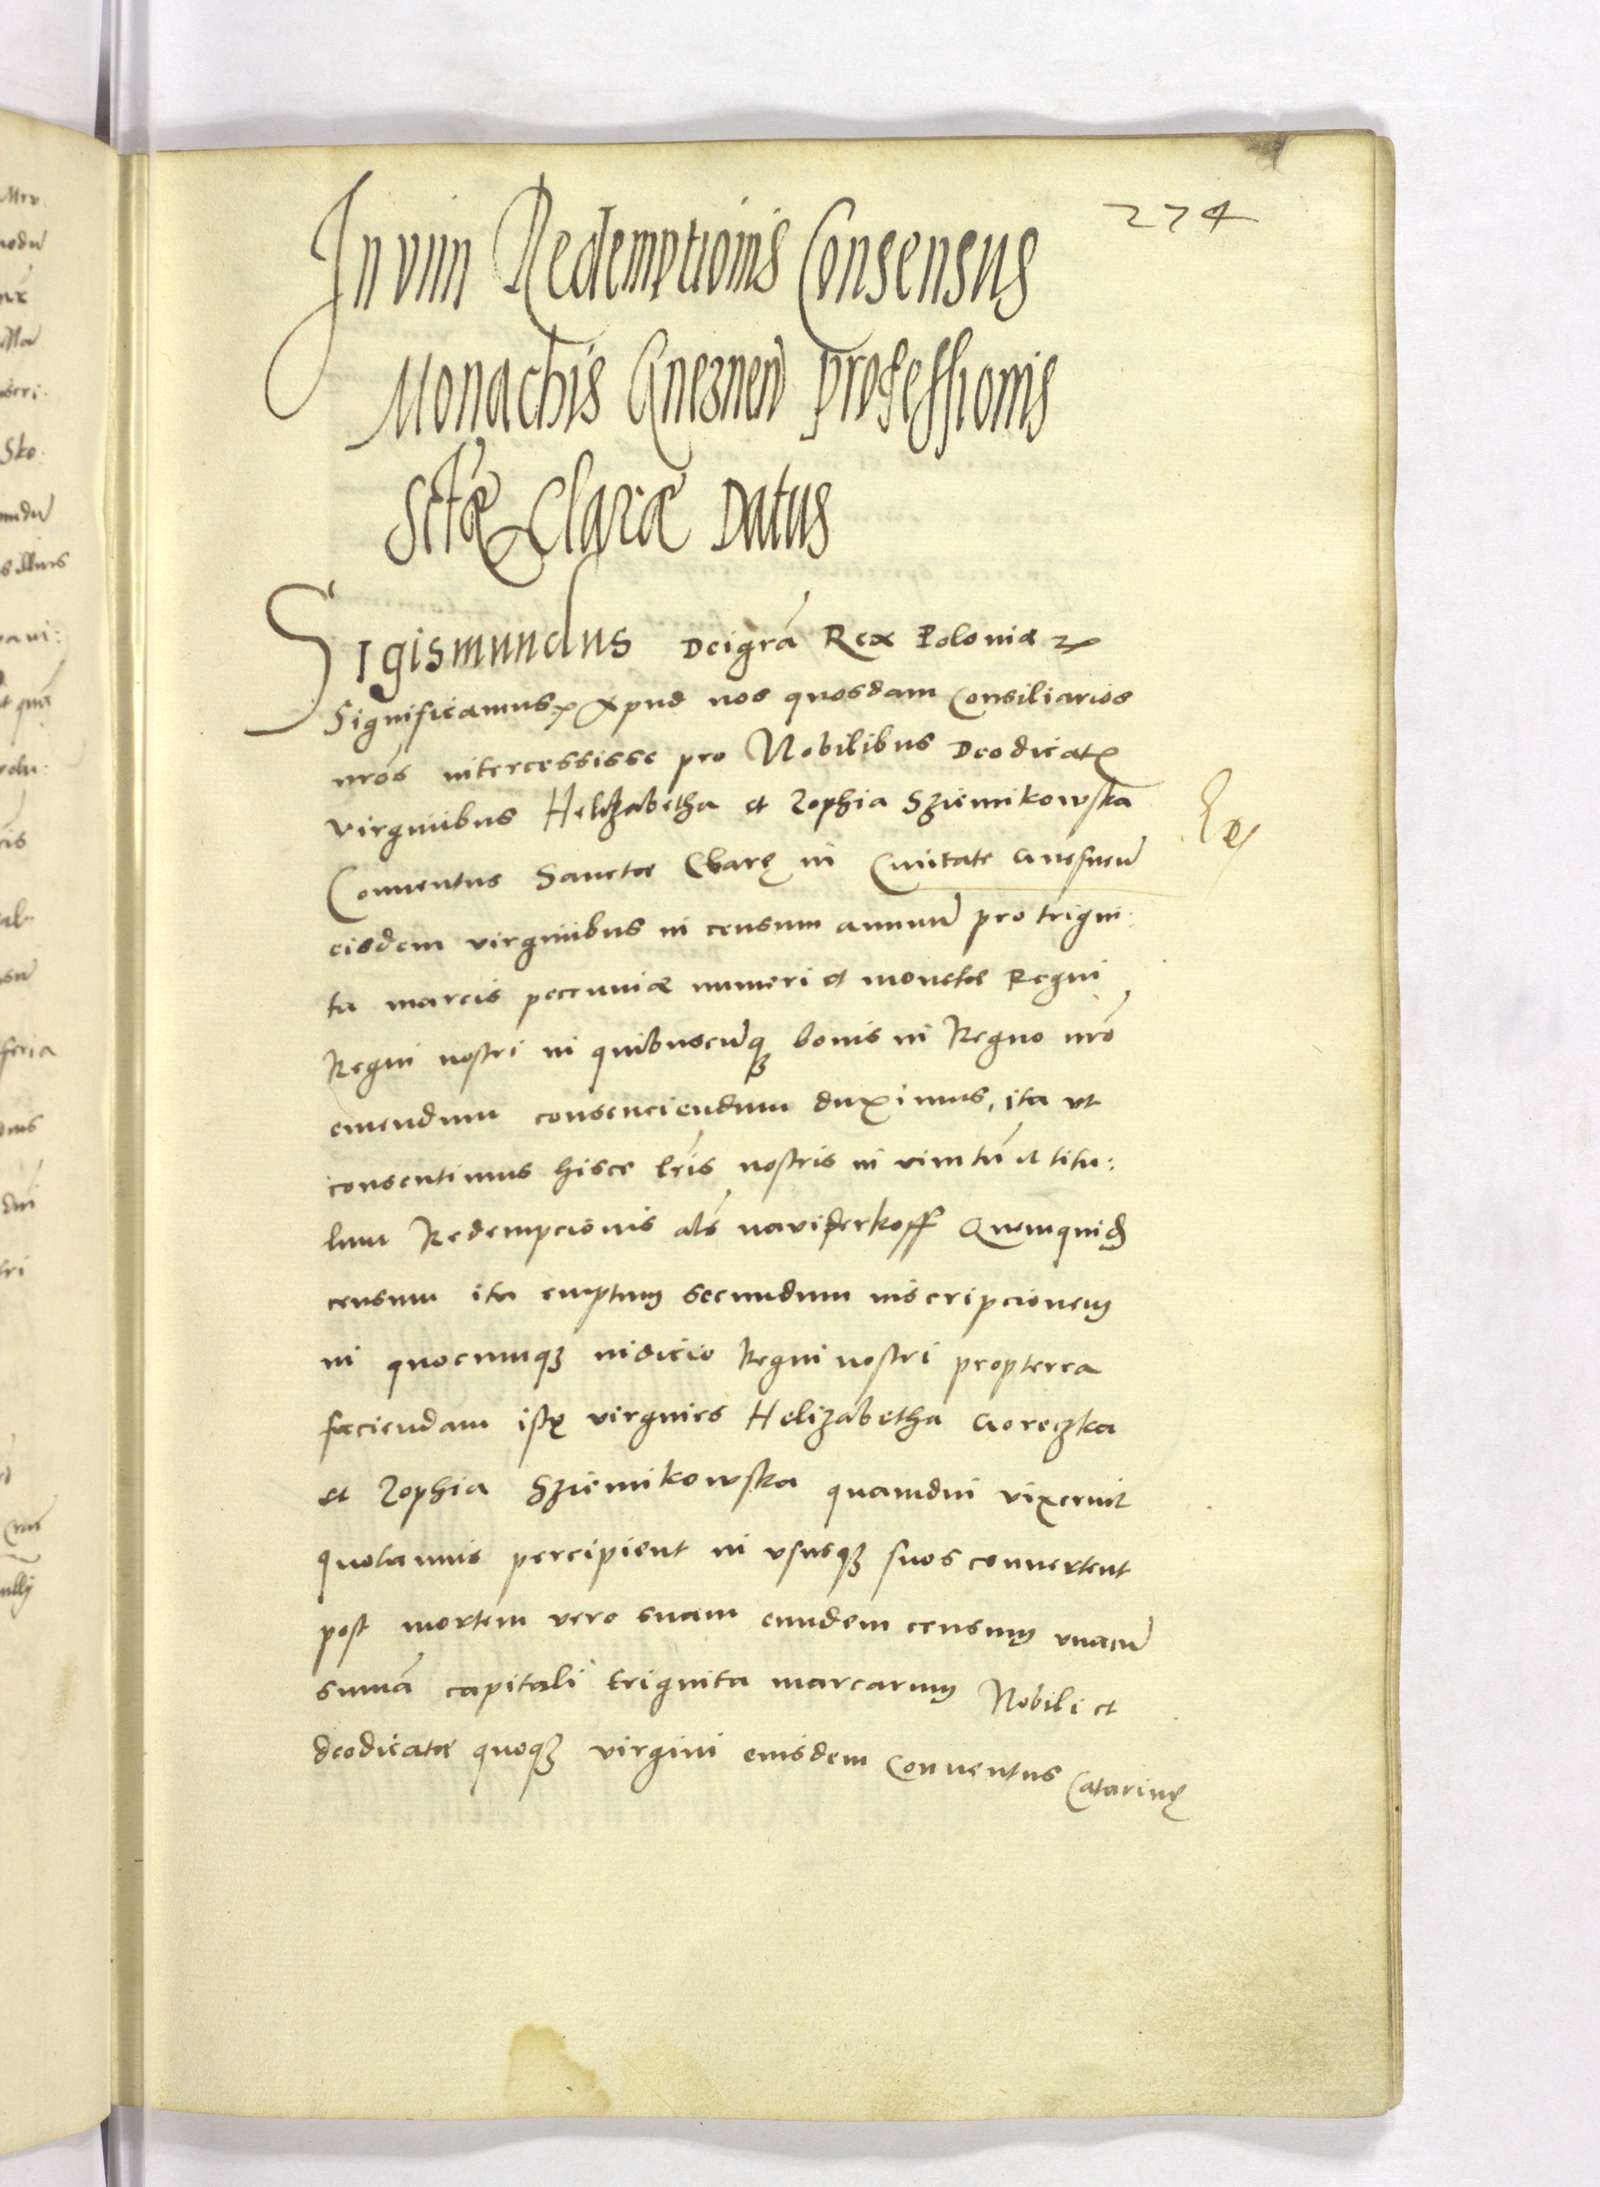 274
In vim Redemptionis Consensus
Monachis Gneznen professionis
Sctæ Claræ Datus
Sigismundus Dei grã Rex Poloniæ
Significamus Apud nos quosdam Consiliarios
nrõs intercessisse pro Nobilibus Deodicat
virginibus Helizabetha et Zophia Sziemikowska
Conventus Sanctæ Clarę in Civitate Gnesnen
eisdem virginibus in censum annuũ pro trigin:
ta marcis peccuniæ numeri et monetæ Regni
Regni nostri in quibuscunq bonis in Regno nrõ
emendum consenciendum duximus, ita ut
consentimus hisce lrĩs nostris in vim tũ et titu:
lum Redempcionis als naviderkoff Quemquid
censum ita emptum secundum inscripcionem
in quocumq iudicio Regni nostri propterea
faciendam istę virgines Helizabetha Goreczka
et Zophia Sziemikowska quamdiu vixerint
quotannis percipient in ususq suos convertent
post mortem vero suam eundem censum unacũ
summã capitali triginta marcarum Nobili et
deodicatæ quoq virgini eiusdem Conventus Catarinę